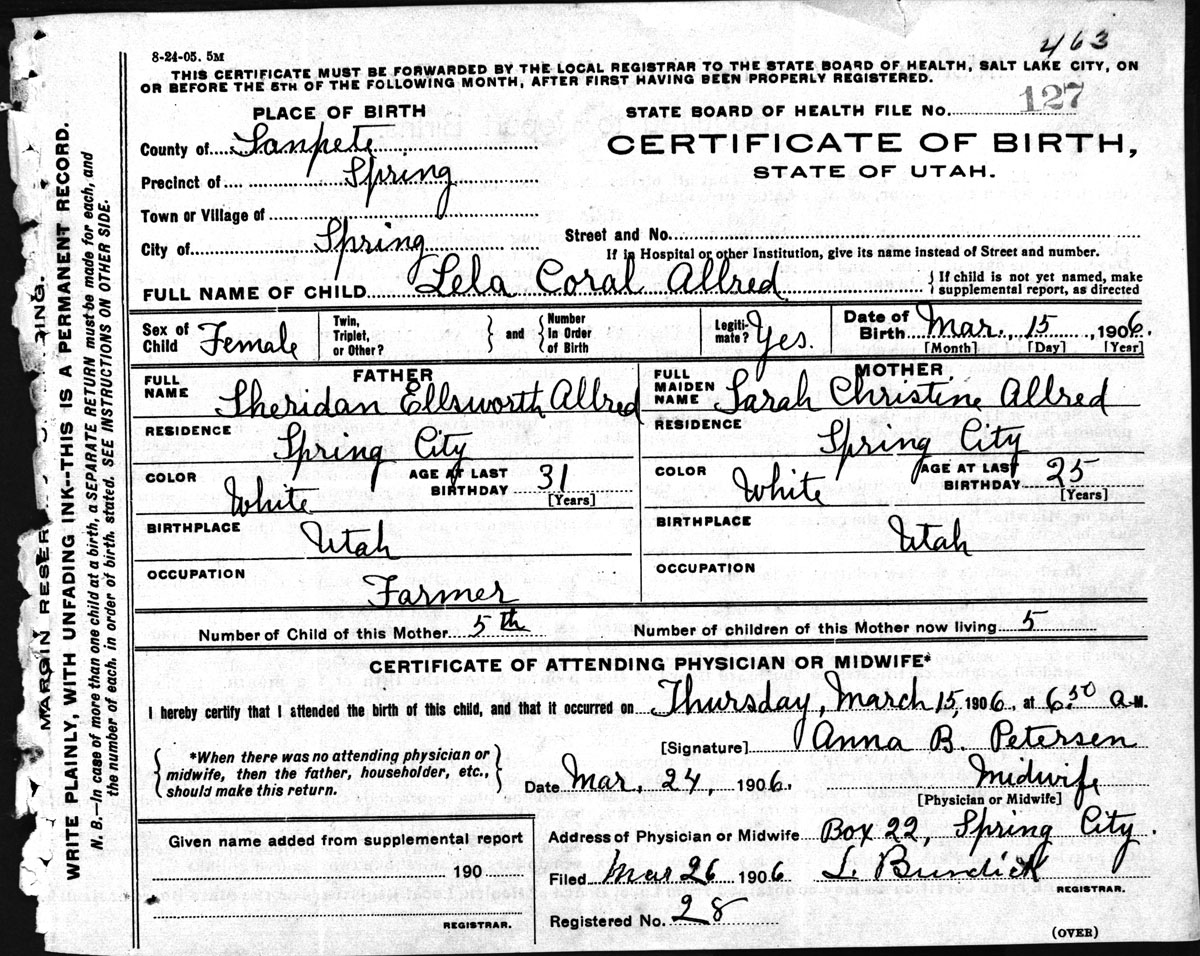 463
8-24-05. 5M
THIS CERTIFICATE MUST BE FORWARDED BY THE LOCAL REGISTRAR TO THE STATE BOARD OF HEALTH, SALT LAKE CITY, ON
OR BEFORE THE 5TH OF THE FOLLOWING MONTH, AFTER FIRST HAVING BEEN PROPERLY REGISTERED.
PLACE OF BIRTH
STATE BOARD OF HEALTH FILE No. 127
County of Sanpete
CERTIFICATE OF BIRTH,
Precinct of Spring
STATE OF UTAH.
Town or Village of
City of Spring
Street and No.
If in Hospital or other Institution, give its name instead of Street and number.
FULL NAME OF CHILD Lela Coral Allred
{ If child is not yet named, make
supplemental report, as directed
Sex of Child Female
Twin, Triplet, or Other? } and { Number In Order of Birth
Legiti-mate? Yes.
Date of Birth Mar., 15, 1906.
[Month] [Day] [Year]
FATHER
FULL NAME Sheridan Ellsworth Allred
RESIDENCE
Spring City
COLOR White
AGE AT LAST BIRTHDAY 31
[Years]
BIRTHPLACE
Utah
OCCUPATION
Farmer
MOTHER
FULL MAIDEN NAME Sarah Christine Allred
RESIDENCE
Spring City
COLOR White
AGE AT LAST BIRTHDAY 25
[Years]
BIRTHPLACE
Utah
OCCUPATION
Number of Child of this Mother 5th
Number of children of this Mother now living 5
CERTIFICATE OF ATTENDING PHYSICIAN OR MIDWIFE*
I hereby certify that I attended the birth of this child, and that it occurred on Thursday, March 15, 1906, at 6:50 A.M.
{ *When there was no attending physician or
midwife, then the father, householder, etc.,
should make this return. }
[Signature] Anna B. Petersen
Date Mar. 24, 1906.
Midwife
[Physician or Midwife]
Given name added from supplemental report
190
REGISTRAR.
Address of Physician or Midwife Box 22, Spring City.
Filed Mar 26 1906 L. Burdick
REGISTRAR.
Registered No. 28
(OVER)
MARGIN RESER ING.
WRITE PLAINLY, WITH UNFADING INK--THIS IS A PERMANENT RECORD.
N. B.--In case of more than one child at a birth, a SEPARATE RETURN must be made for each, and
the number of each, in order of birth, stated. SEE INSTRUCTIONS ON OTHER SIDE.